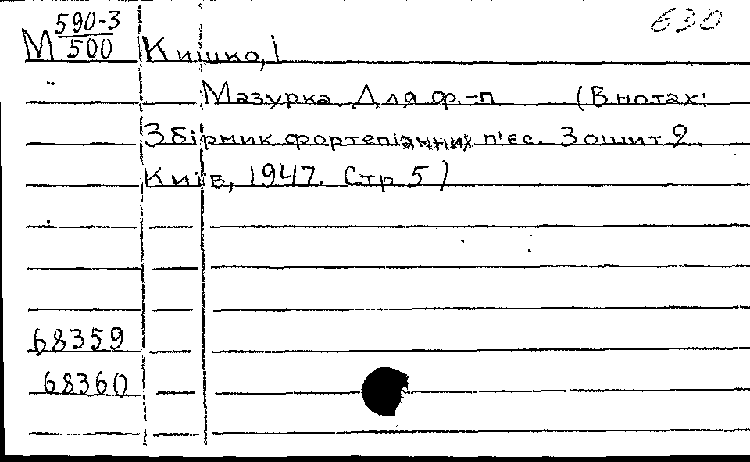 630
М 590-3/500 Кишко, І
Мазурка Для ф.-п (В нотах:
Збірник фортепіянних п'єс. Зошит 2.
Київ, 1947. Стр 5)
68359
68360